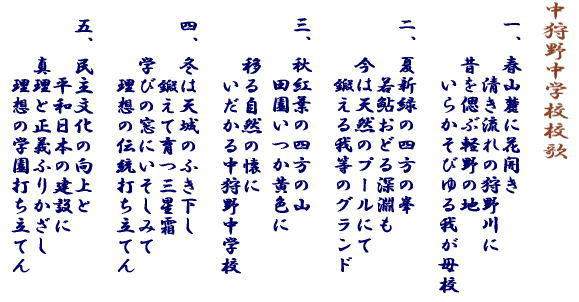 中狩野中学校校歌
一、春山麓に花開き
清き流れの狩野川に
昔を偲ぶ軽野の地
いらかそびゆる我が母校
二、夏新緑の四方の峯
若鮎おどる深淵も
今は天然のプールにて
鍛える我等のグランド
三、秋紅葉の四方の山
田園いつか黄色に
移る自然の懐に
いだかる中狩野中学校
四、冬は天城のふき下し
鍛えて育つ三星霜
学びの窓にいそしみて
理想の伝統打ち立てん
五、民主文化の向上と
平和日本の建設に
真理と正義ふりかざし
理想の学園打ち立てん